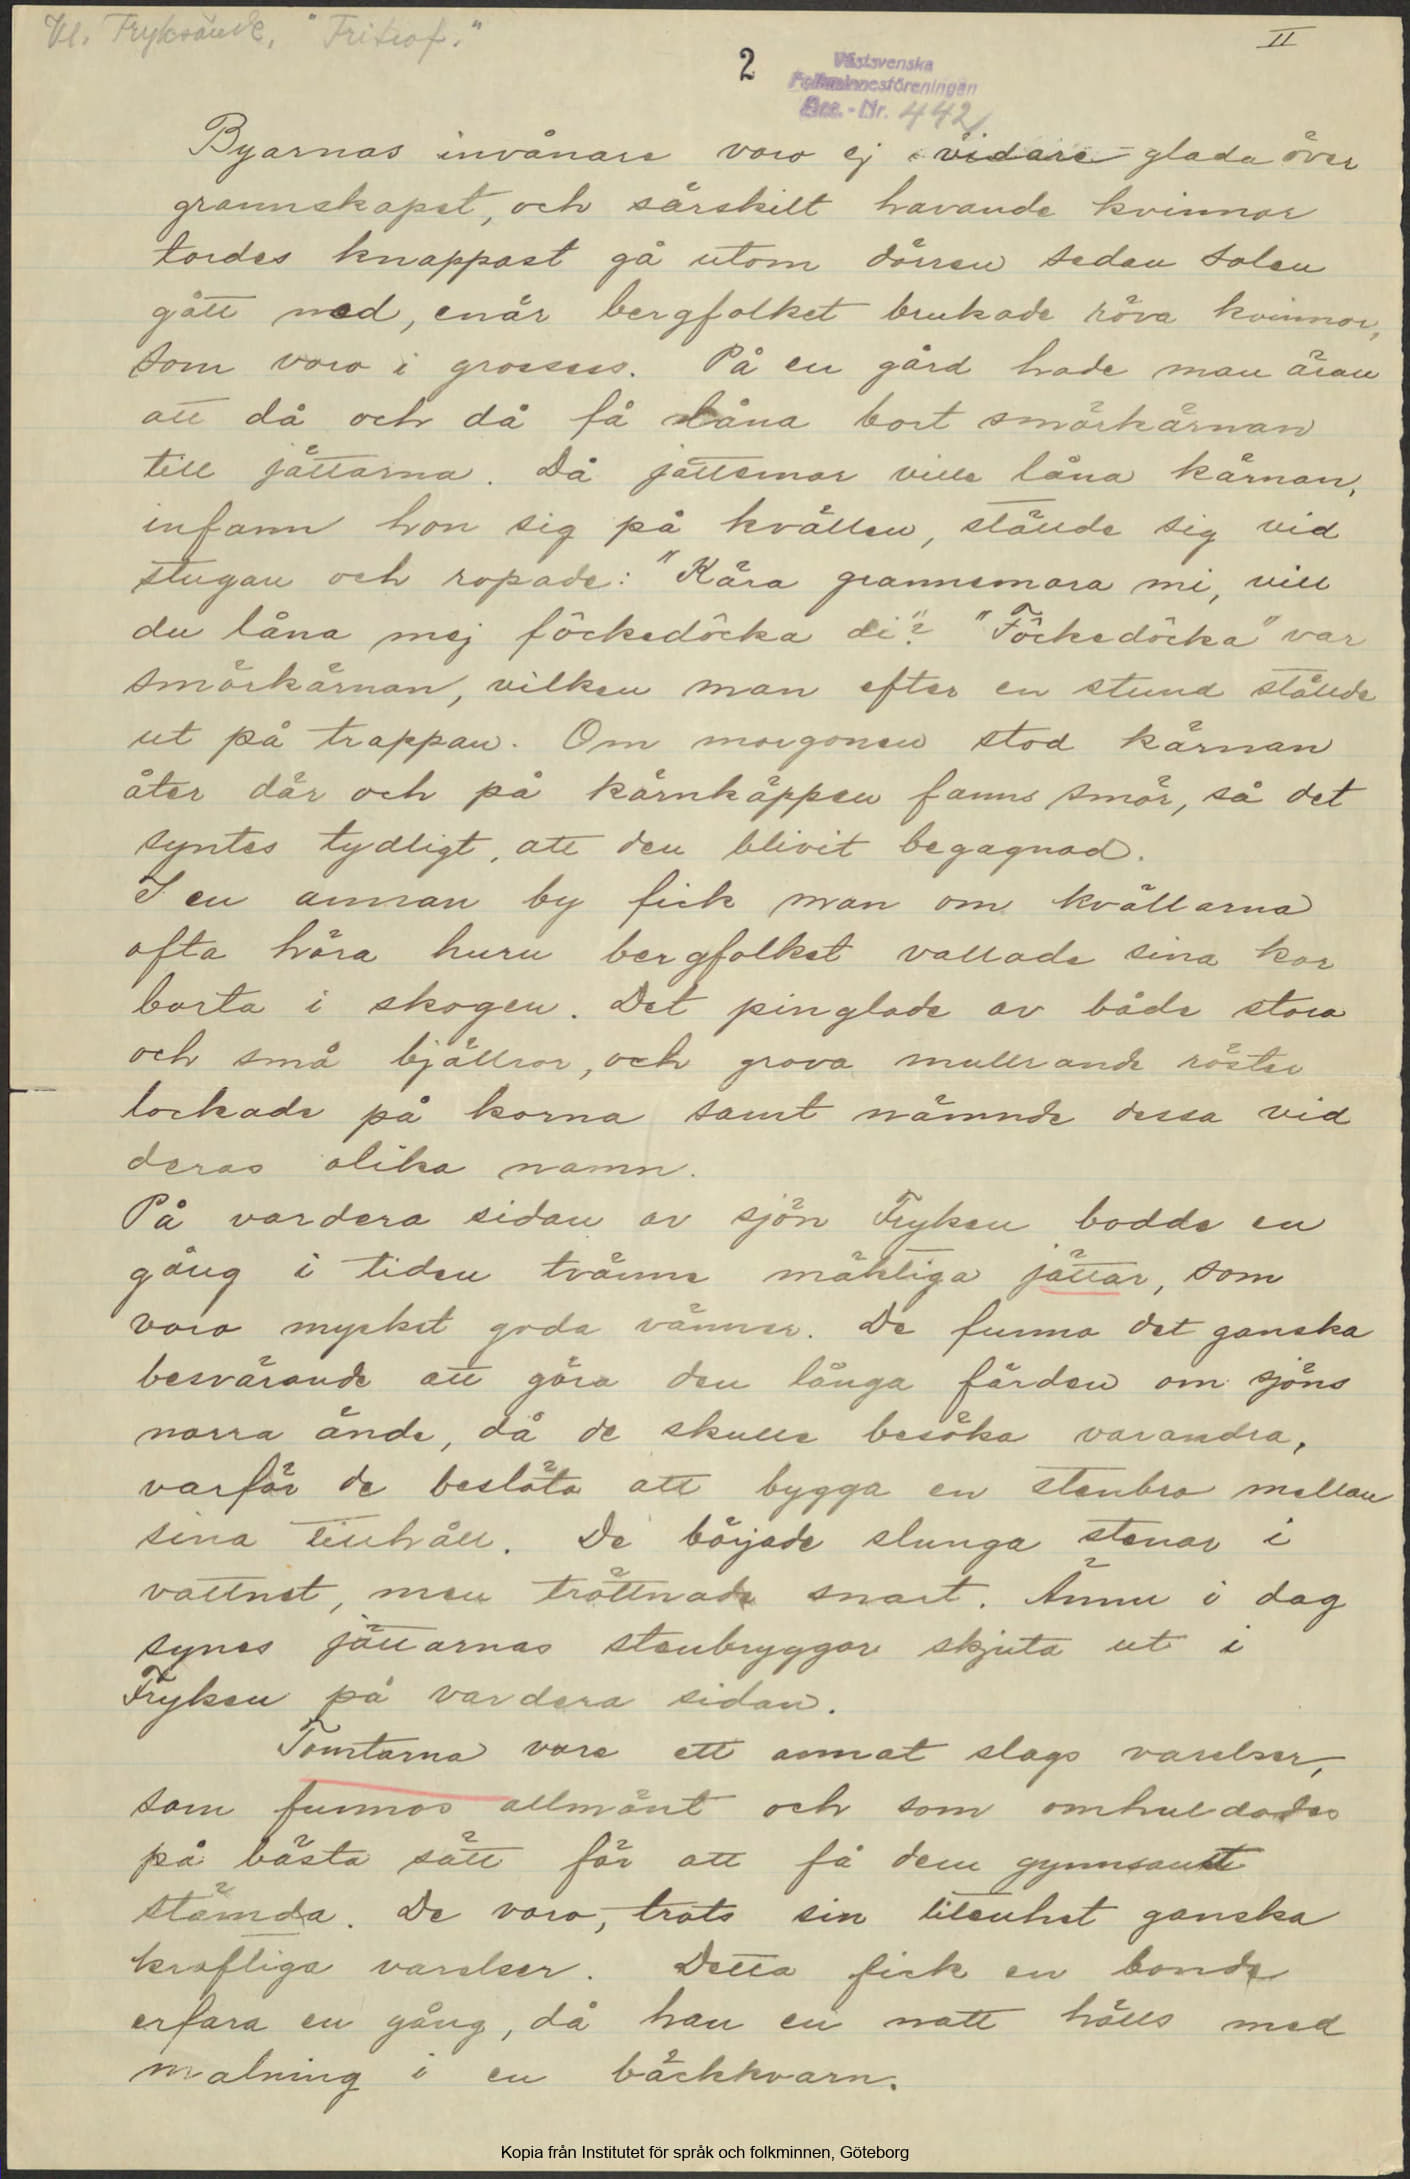 Vl. Fryksände, "Fritiof."
II
2
Västsvenska
Folkminnesföreningen
Acc.-Nr. 442
Byarnas invånare voro ej vidare glada över
grannskapet, och särskilt havande kvinnor
tordes knappast gå utom dörren sedan solen
gått ned, enär bergfolket brukade röva kvinnor,
som voro i grossess. På en gård hade man äran
att då och då få låna bort smörkärnan
till jättarna. Då jättemor ville låna kärnan,
infann hon sig på kvällen, ställde sig vid
stugan och ropade: "Kära grannemora mi, vill
du låna mej föckedöcka di"? "Föckedöcka" var
smörkärnan, vilken man efter en stund ställde
ut på trappan. Om morgonen stod kärnan
åter där och på kärnkäppen fanns smör, så det
syntes tydligt, att den blivit begagnad.
I en annan by fick man om kvällarna
ofta höra huru bergfolket vallade sina kor
borta i skogen. Det pinglade av både stora
och små bjällror, och grova mullrande röster
lockade på korna samt nämnde dessa vid
deras olika namn.
På vardera sidan av sjön Fryken bodde en
gång i tiden tvänne mäktiga jättar, som
voro mycket goda vänner. De funno det ganska
besvärande att göra den långa färden om sjöns
norra ände, då de skulle besöka varandra,
varför de beslöto att bygga en stenbro mellan
sina tillhåll. De började slunga stenar i
vattnet, men tröttnade snart. Ännu i dag
synes jättarnas stenbryggor skjuta ut i
Fryken på vardera sidan.
Tomtarna voro ett annat slags varelser,
som funnos allmänt och som omhuldades
på bästa sätt för att få dem gynnsamt
stämda. De voro, trots sin litenhet ganska
kraftiga varelser. Detta fick en bonde
erfara en gång, då han en natt hölls med
malning i en bäckkvarn.
Kopia från Institutet för språk och folkminnen, Göteborg